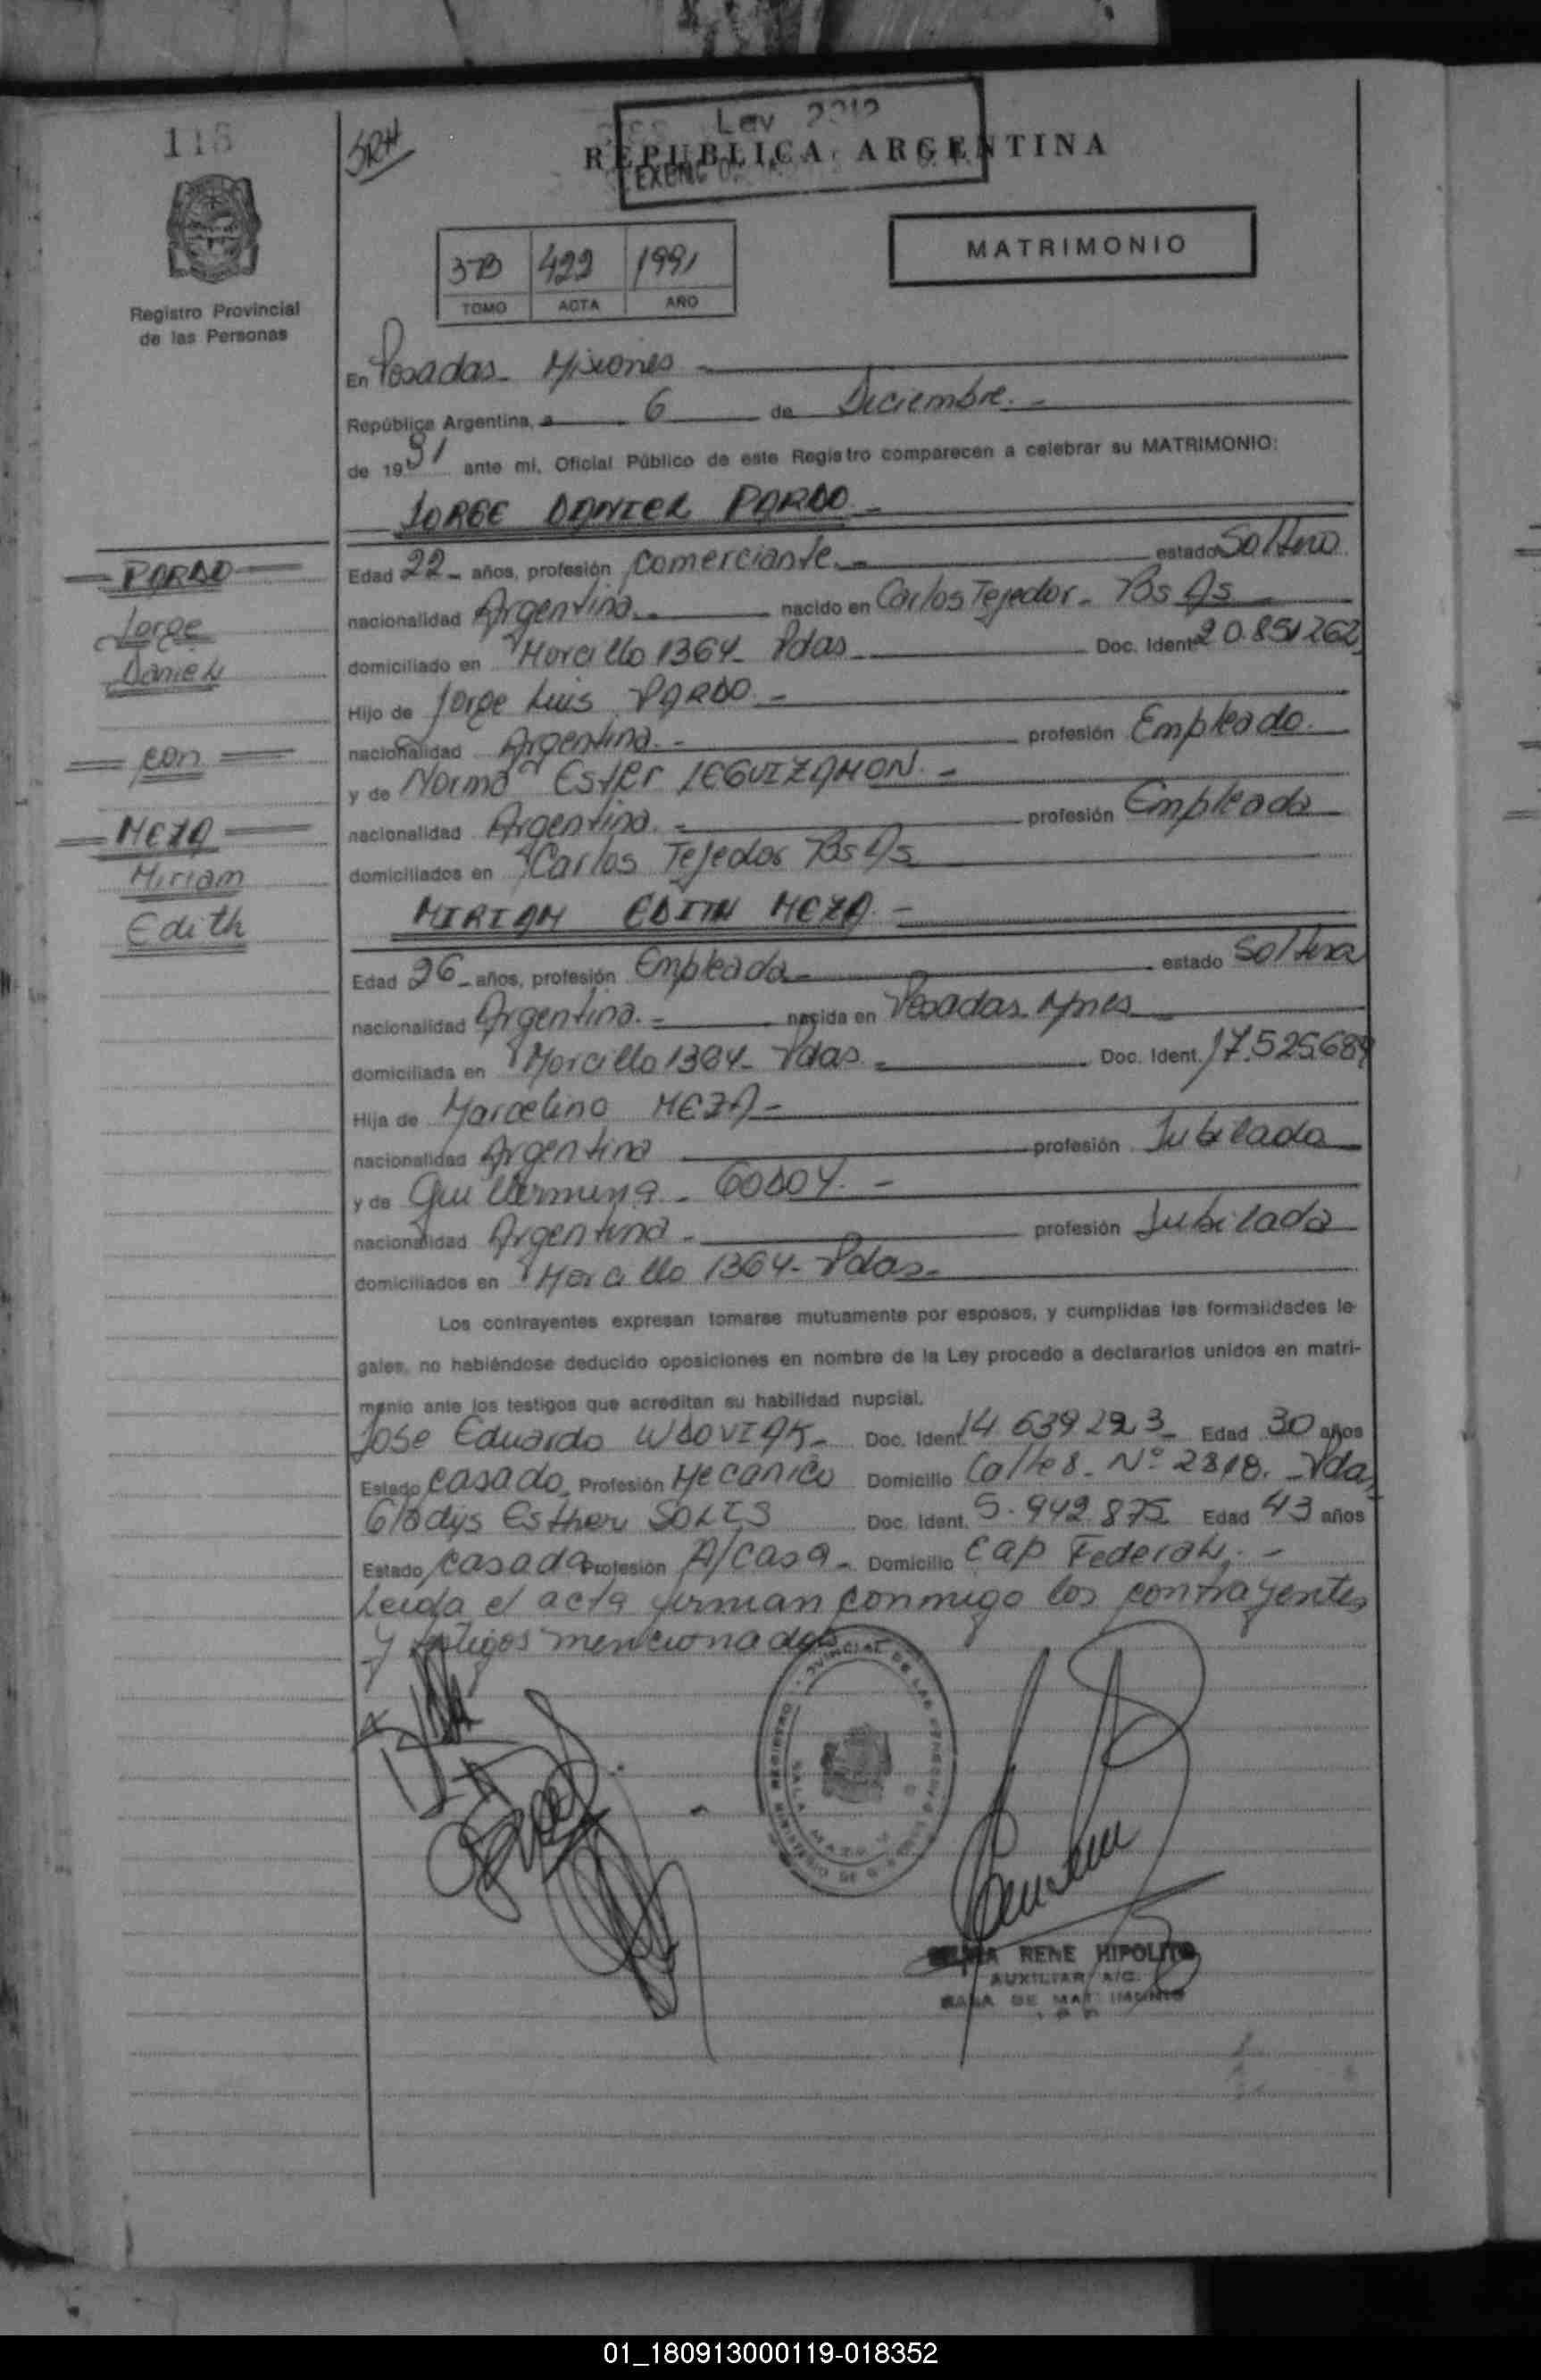 118
SRH
Ley 2212
REPUBLICA ARGENTINA
MATRIMONIO
37B 422 1991
TOMO ACTA AÑO
Registro Provincial
de las Personas
En Posadas - Misiones -
República Argentina, a 6 de Diciembre. -
de 1991 ante mi, Oficial Público de este Registro comparecen a celebrar su MATRIMONIO:
JORGE DANIEL PARDO -
PARDO
Jorge
Daniel
con
MEZA
Miriam
Edith
Edad 22 - años, profesión Comerciante. - estado Soltero
nacionalidad Argentina. - nacido en Carlos Tejedor - Bs As
domiciliado en Morcillo 1364 - Pdas - Doc. Ident. 20.851262
Hijo de Jorge Luis PARDO. -
nacionalidad Argentina. - profesión Empleado.
y de Norma Ester LEGUIZAMON. -
nacionalidad Argentina. - profesión Empleada
domiciliados en Carlos Tejedor Bs As
MIRIAM EDITH MEZA. -
Edad 26 - años, profesión Empleada - estado Soltera
nacionalidad Argentina. - nacida en Posadas Mnes
domiciliada en Morcillo 1364 - Pdas - Doc. Ident. 17.525.684
Hija de Marcelino MEZA -
nacionalidad Argentina profesión Jubilado
y de Guillermina - GODOY. -
nacionalidad Argentina - profesión Jubilada
domiciliados en Morcillo 1364 - Pdas -
Los contrayentes expresan tomarse mutuamente por esposos, y cumplidas las formalidades le-
gales, no habiéndose deducido oposiciones en nombre de la Ley procedo a declararlos unidos en matri-
monio ante los testigos que acreditan su habilidad nupcial.
Jose Eduardo WDOVIAK - Doc. Ident. 14 639 223 - Edad 30 años
Estado Casado, Profesión Mecanico Domicilio Calle 8 - Nº 2818. - Pdas
Gladys Esther SOLIS Doc. Ident. 5.942.875 Edad 43 años
Estado Casada Profesión A/Casa - Domicilio Cap Federal. -
Leida el acta firman conmigo los contrayentes
y testigos mencionados
RENE HIPOLITO
AUXILIAR A/C.
SALA DE MATRIMONIO
01_180913000119-018352